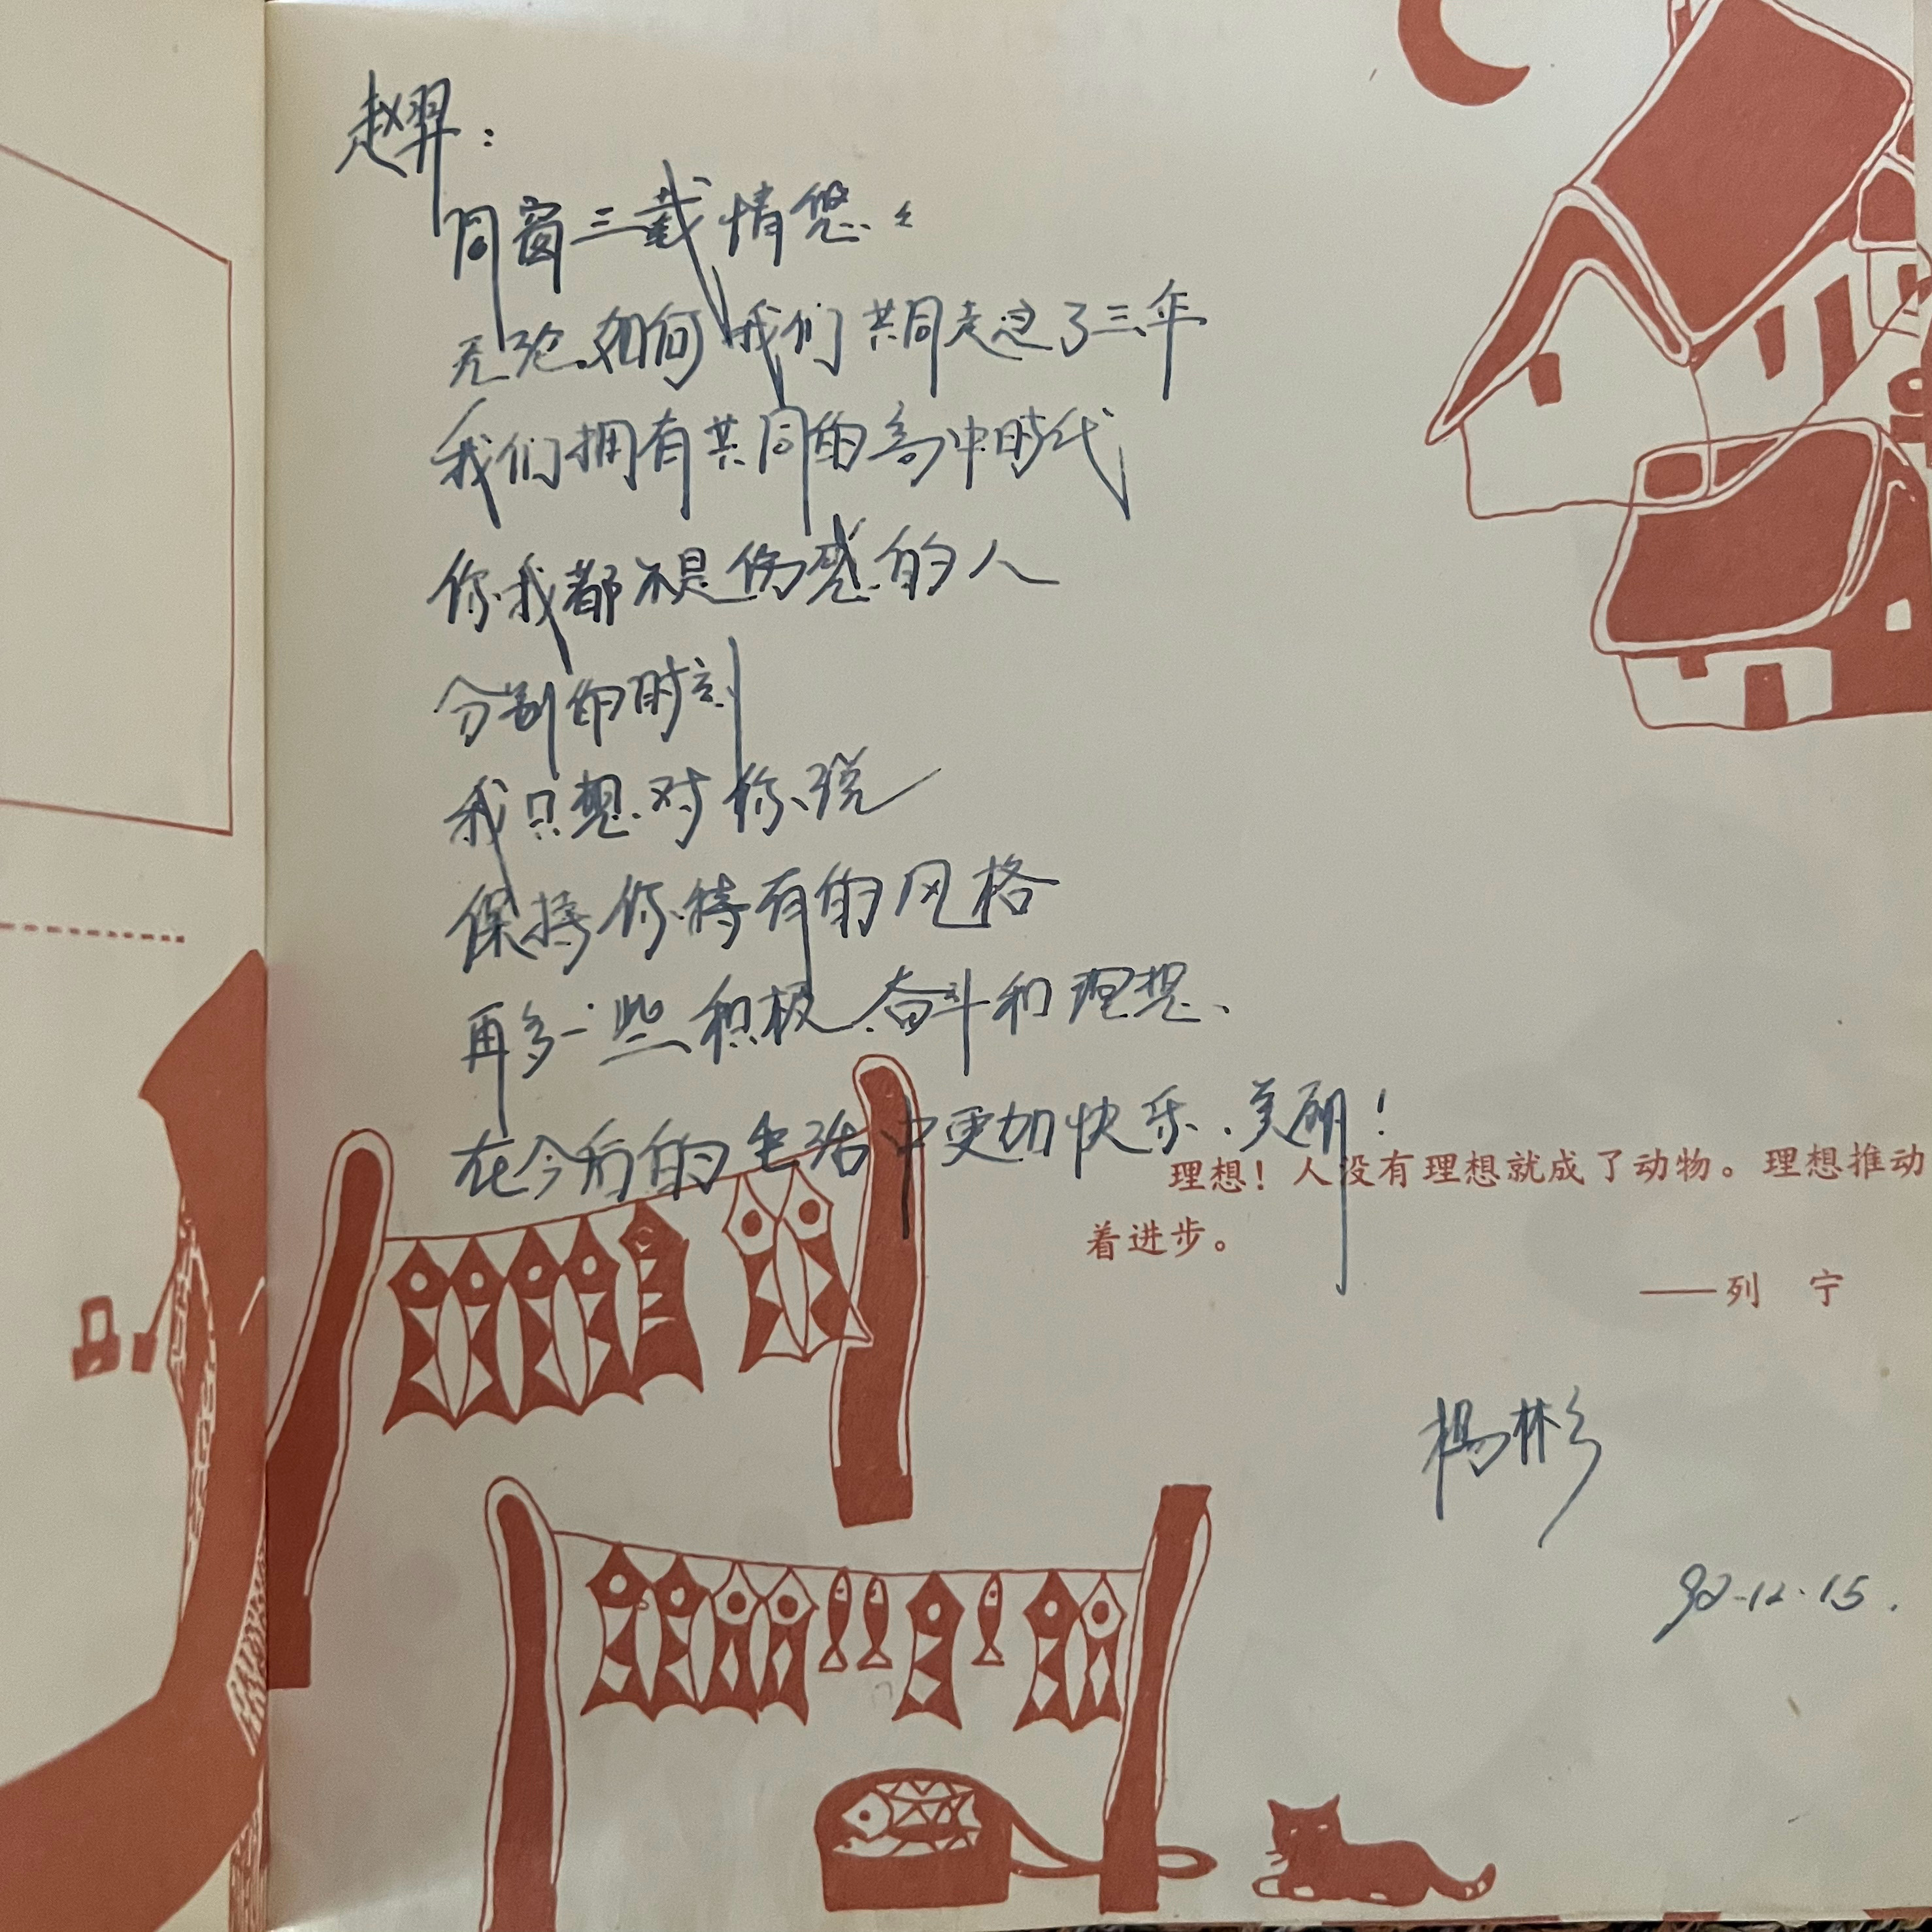 赵羿：
同窗三载情悠々
无论如何 我们共同走过了三年
我们拥有共同的高中时代
你我都不是伤感的人
分别的时刻
我只想对你说
保持你特有的风格
再多一些积极、奋斗和理想、
在今后的生活中更加快乐、美丽！
理想！人没有理想就成了动物。理想推动
着进步。
——列 宁
杨彬
92-12·15.